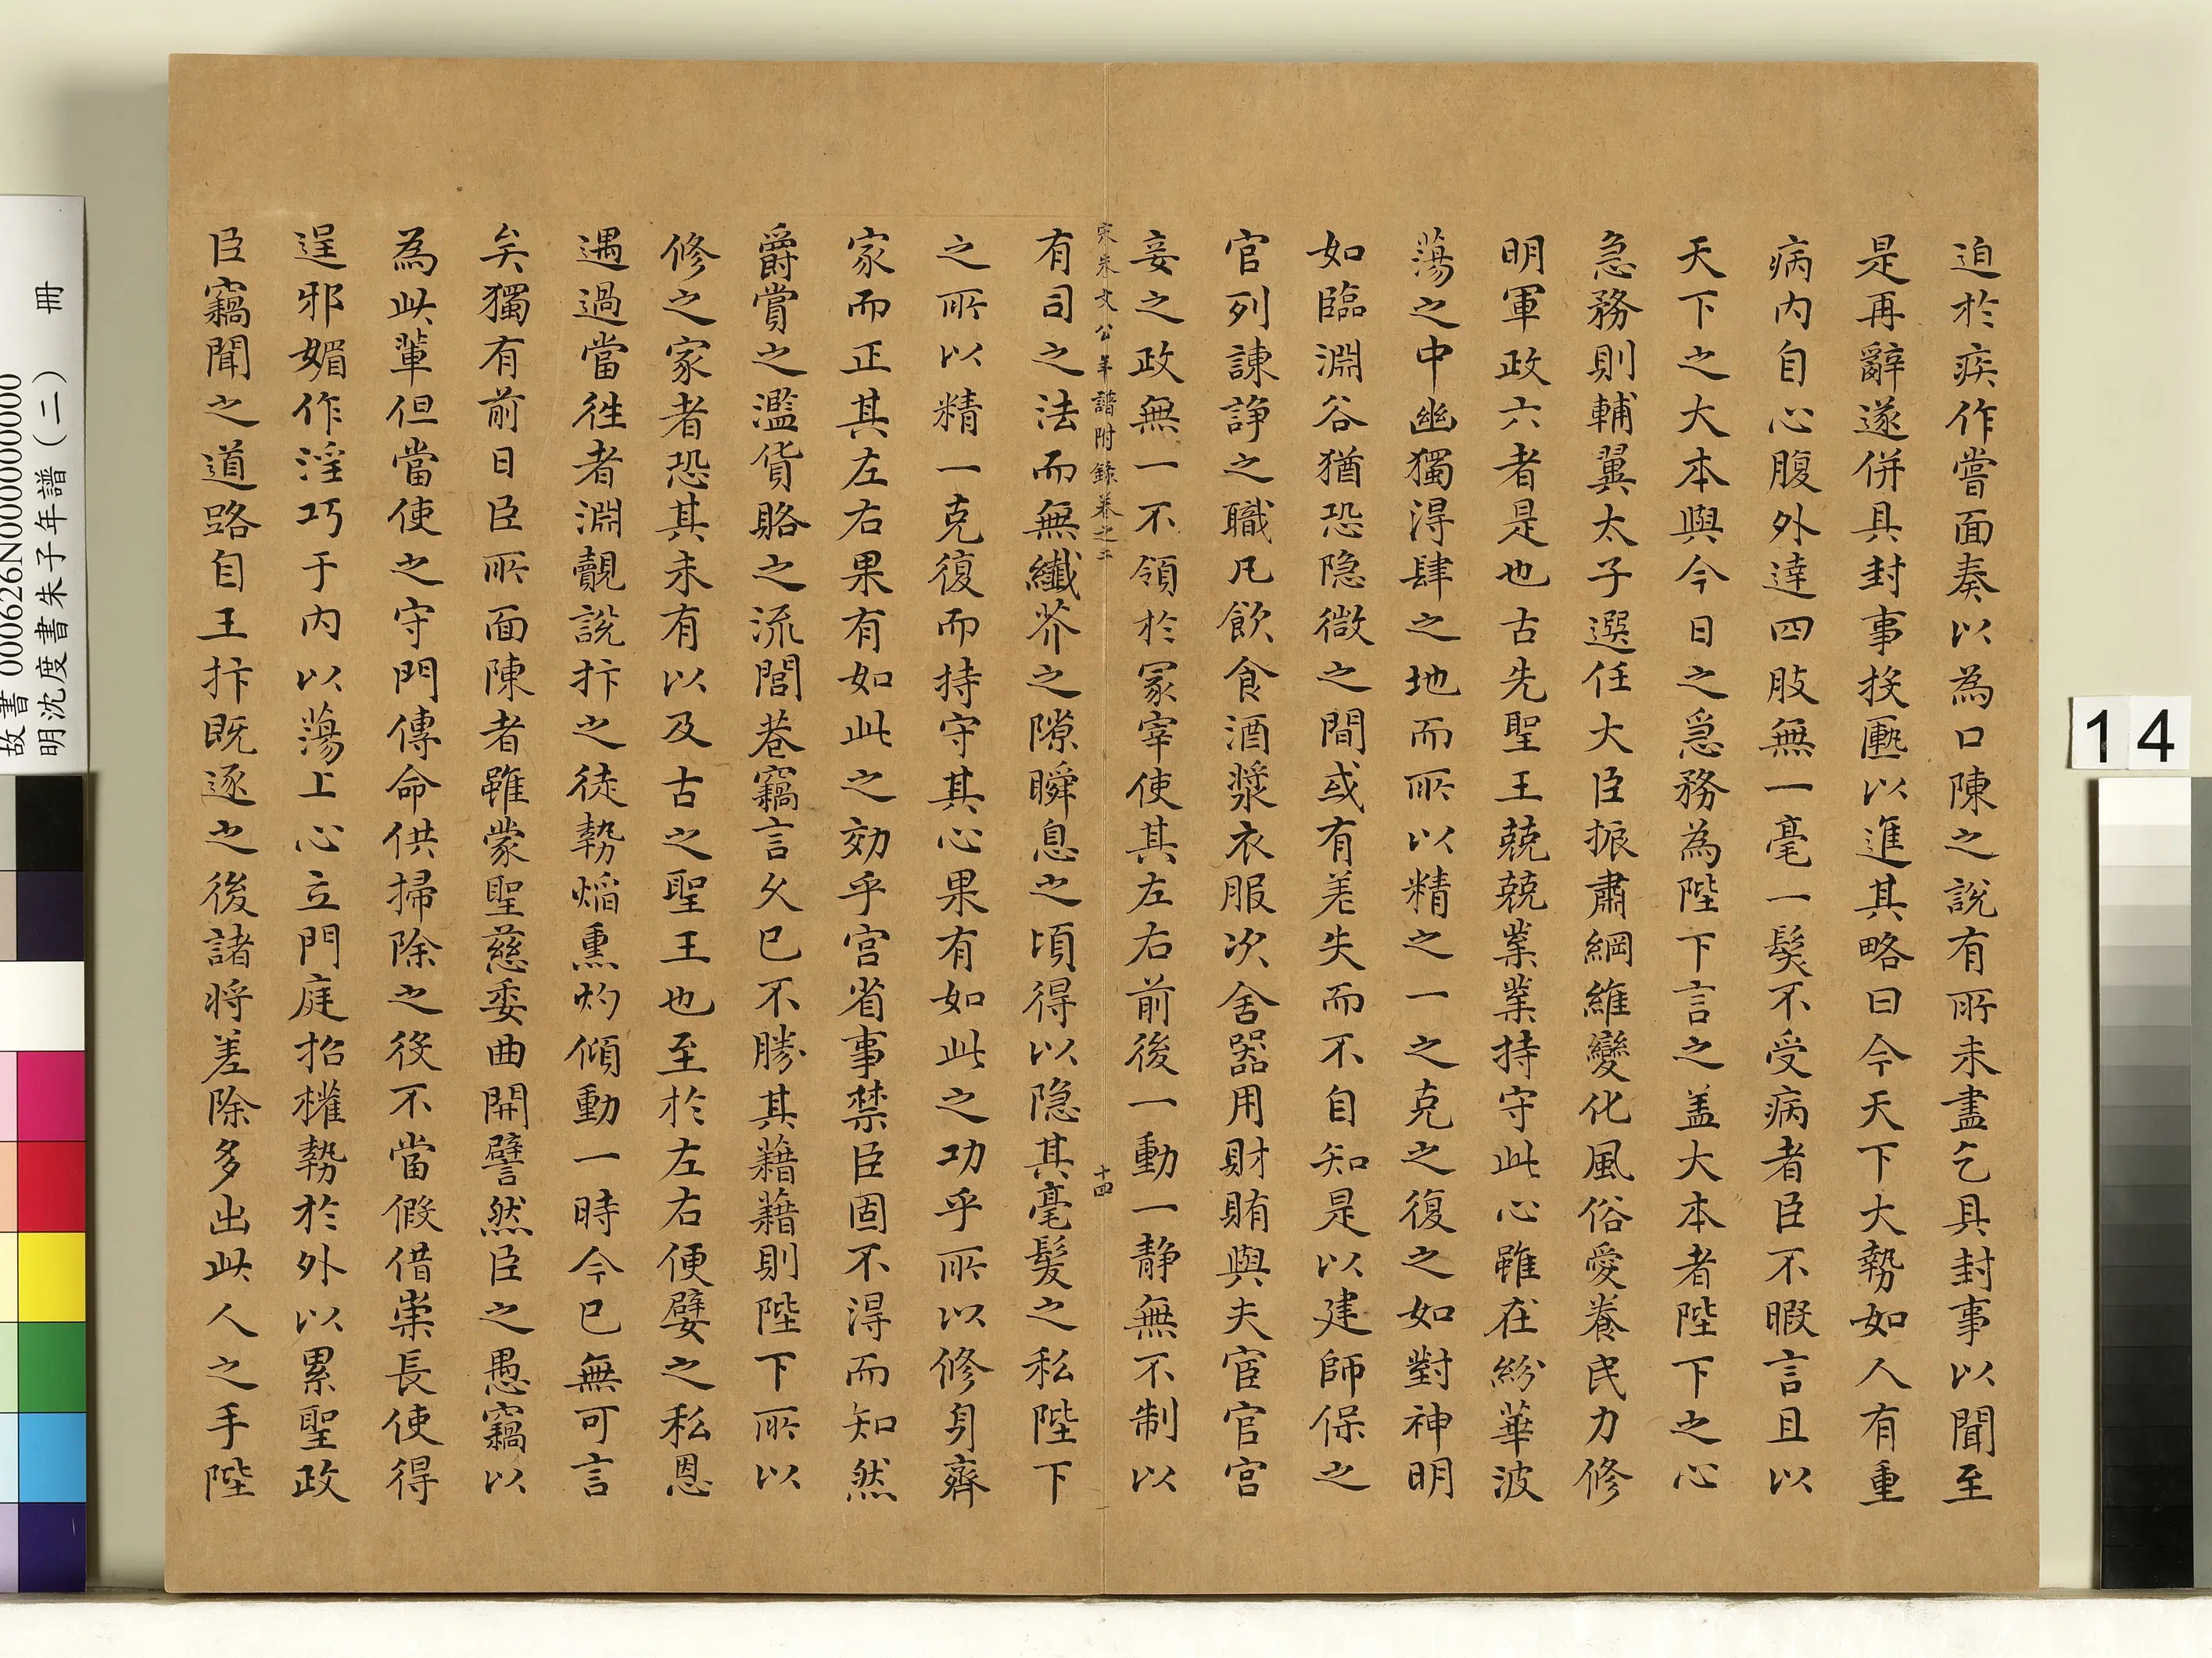 迫於疾作嘗面奏以為口陳之說有所未盡乞具封事以聞至
是再辭遂併具封事投匭以進其略曰今天下大勢如人有重
病内自心腹外達四肢無一毫一髮不受病者臣不暇言且以
天下之大本與今日之急務為陛下言之盖大本者陛下之心
急務則輔翼太子選任大臣振肅綱維變化風俗愛養民力修
明軍政六者是也古先聖王兢兢業業持守此心雖在紛華波
蕩之中幽獨得肆之地而所以精之一之克之復之如對神明
如臨淵谷猶恐隐微之間或有差失而不自知是以建師保之
官列諫諍之職凡飲食酒漿衣服次舍器用財賄與夫宦官宫
妾之政無一不領於冢宰使其左右前後一動一静無不制以
宋朱文公年譜附錄卷之二
十四
有司之法而無纖芥之隙瞬息之頃得以隐其毫髮之私陛下
之所以精一克復而持守其心果有如此之功乎所以修身齊
家而正其左右果有如此之効乎宫省事禁臣固不得而知然
爵賞之濫貨賂之流閭巷竊言久已不勝其藉藉則陛下所以
修之家者恐其未有以及古之聖王也至於左右便嬖之私恩
遇過當徃者淵覿說抃之徒勢熖熏灼傾動一時今已無可言
矣獨有前日臣所面陳者雖蒙聖慈委曲開譬然臣之愚竊以
為此輩但當使之守門傳命供掃除之役不當假借崇長使得
逞邪媚作淫巧于内以蕩上心立門庭招權勢於外以累聖政
臣竊聞之道路自王抃既逐之後諸将差除多出此人之手陛
14
故書 000626N000000000
明沈度書朱子年譜(二) 冊